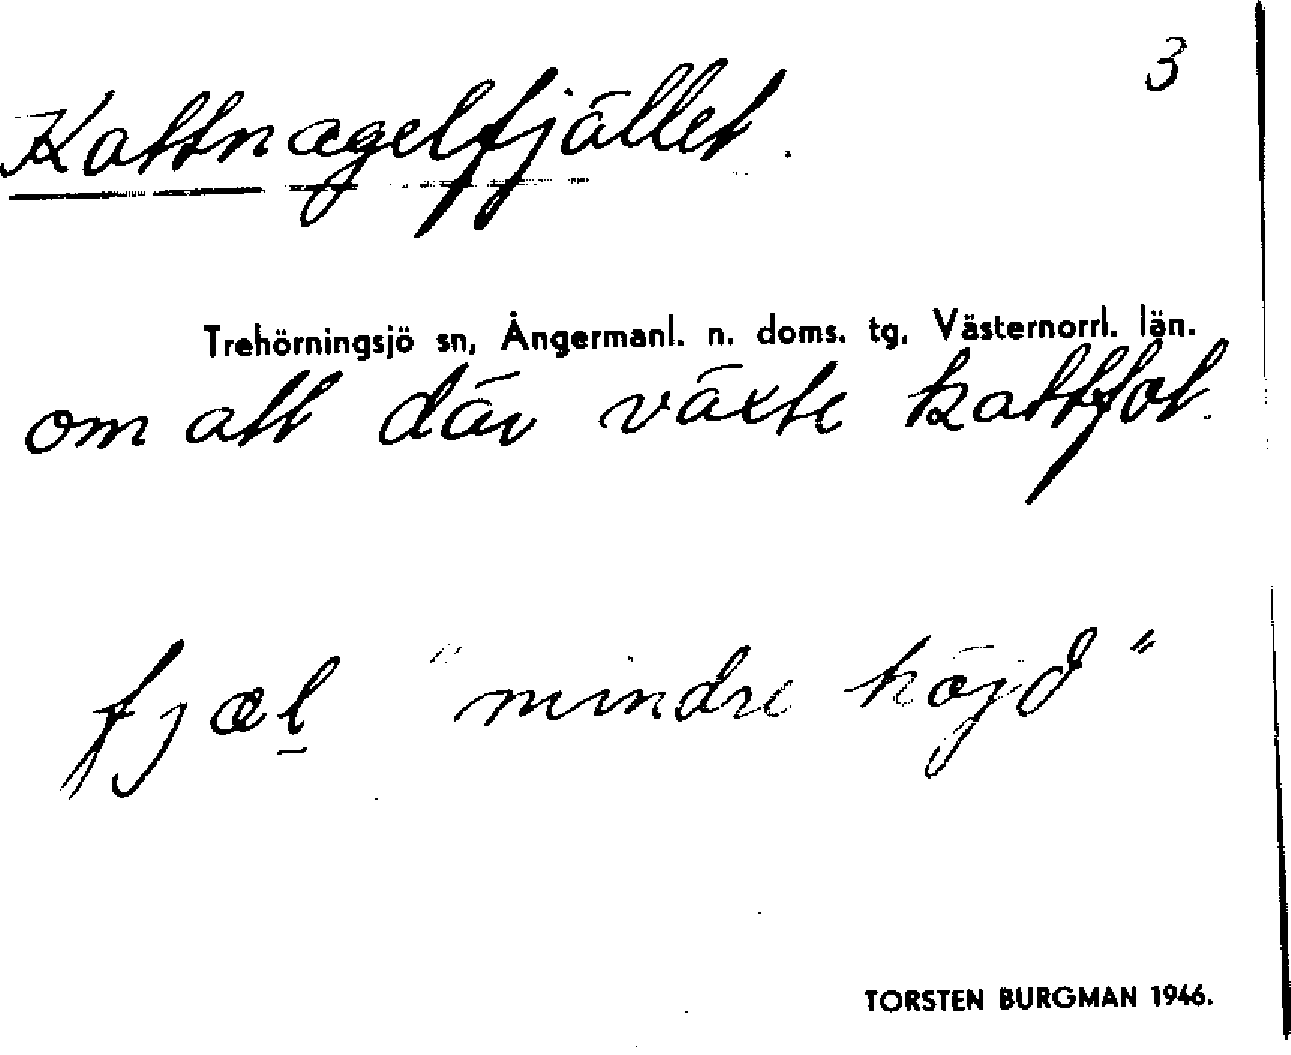 3
Kattnagelfjället.
Trehörningsjö sn, Ångermanl. n. doms. tg, Västernorrl. län.
om att där växte kattfot.
fjæl̲ "mindre höjd"
TORSTEN BURGMAN 1946.